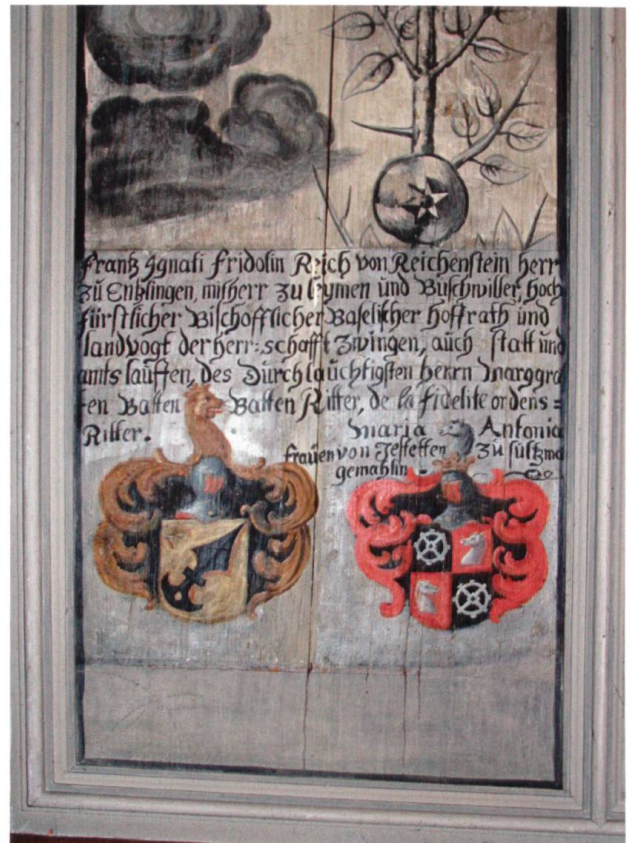 Frantz Ignati Fridolin Reich von Reichenstein herr
zu Entzlingen, mitherr zu Leymen und Buschwiller, hoch
fürstlicher Bischofflicher Baselischer hoffrath und
landvogt der herr=schafft Zwingen, auch statt und
amts lauffen, des Durchlauchtigsten herrn Marggra
fen Batten Batten Ritter, de la fidelite ordens=
Ritter. Maria Antonia
frauen von Jestetten zu
gemahlin